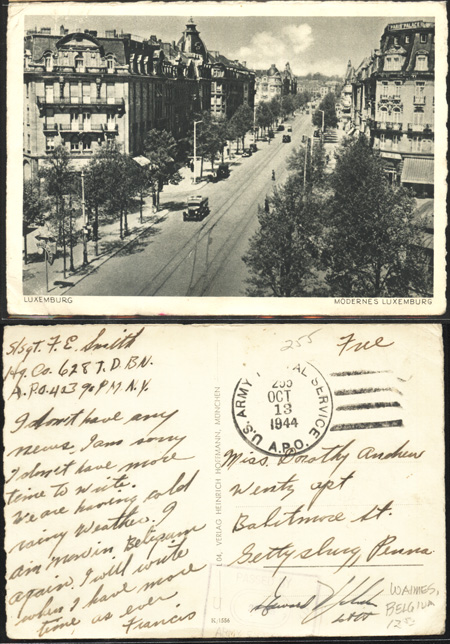 PARIS PALACE
LUXEMBURG
MODERNES LUXEMBURG
S/Sgt. F. E. Smith
Hq. Co. 628 T. D. B.N.
A.P.O. 403 % P.M. N.Y.
I don't have any
news. I am sorry
I don't have more
time to write.
We are having cold
rainy weather. I
am now in Belgium
again. I will write
when I have more
time as ever
Francis
VERLAG HEINRICH HOFFMANN, MÜNCHEN
255
Free
U.S. ARMY POSTAL SERVICE
A.P.O.
255
OCT
13
1944
Miss. Dorothy Andrew
Wentz apt
Baltimore St.
Gettysburg, Penna
WAIMES,
BELGIUM